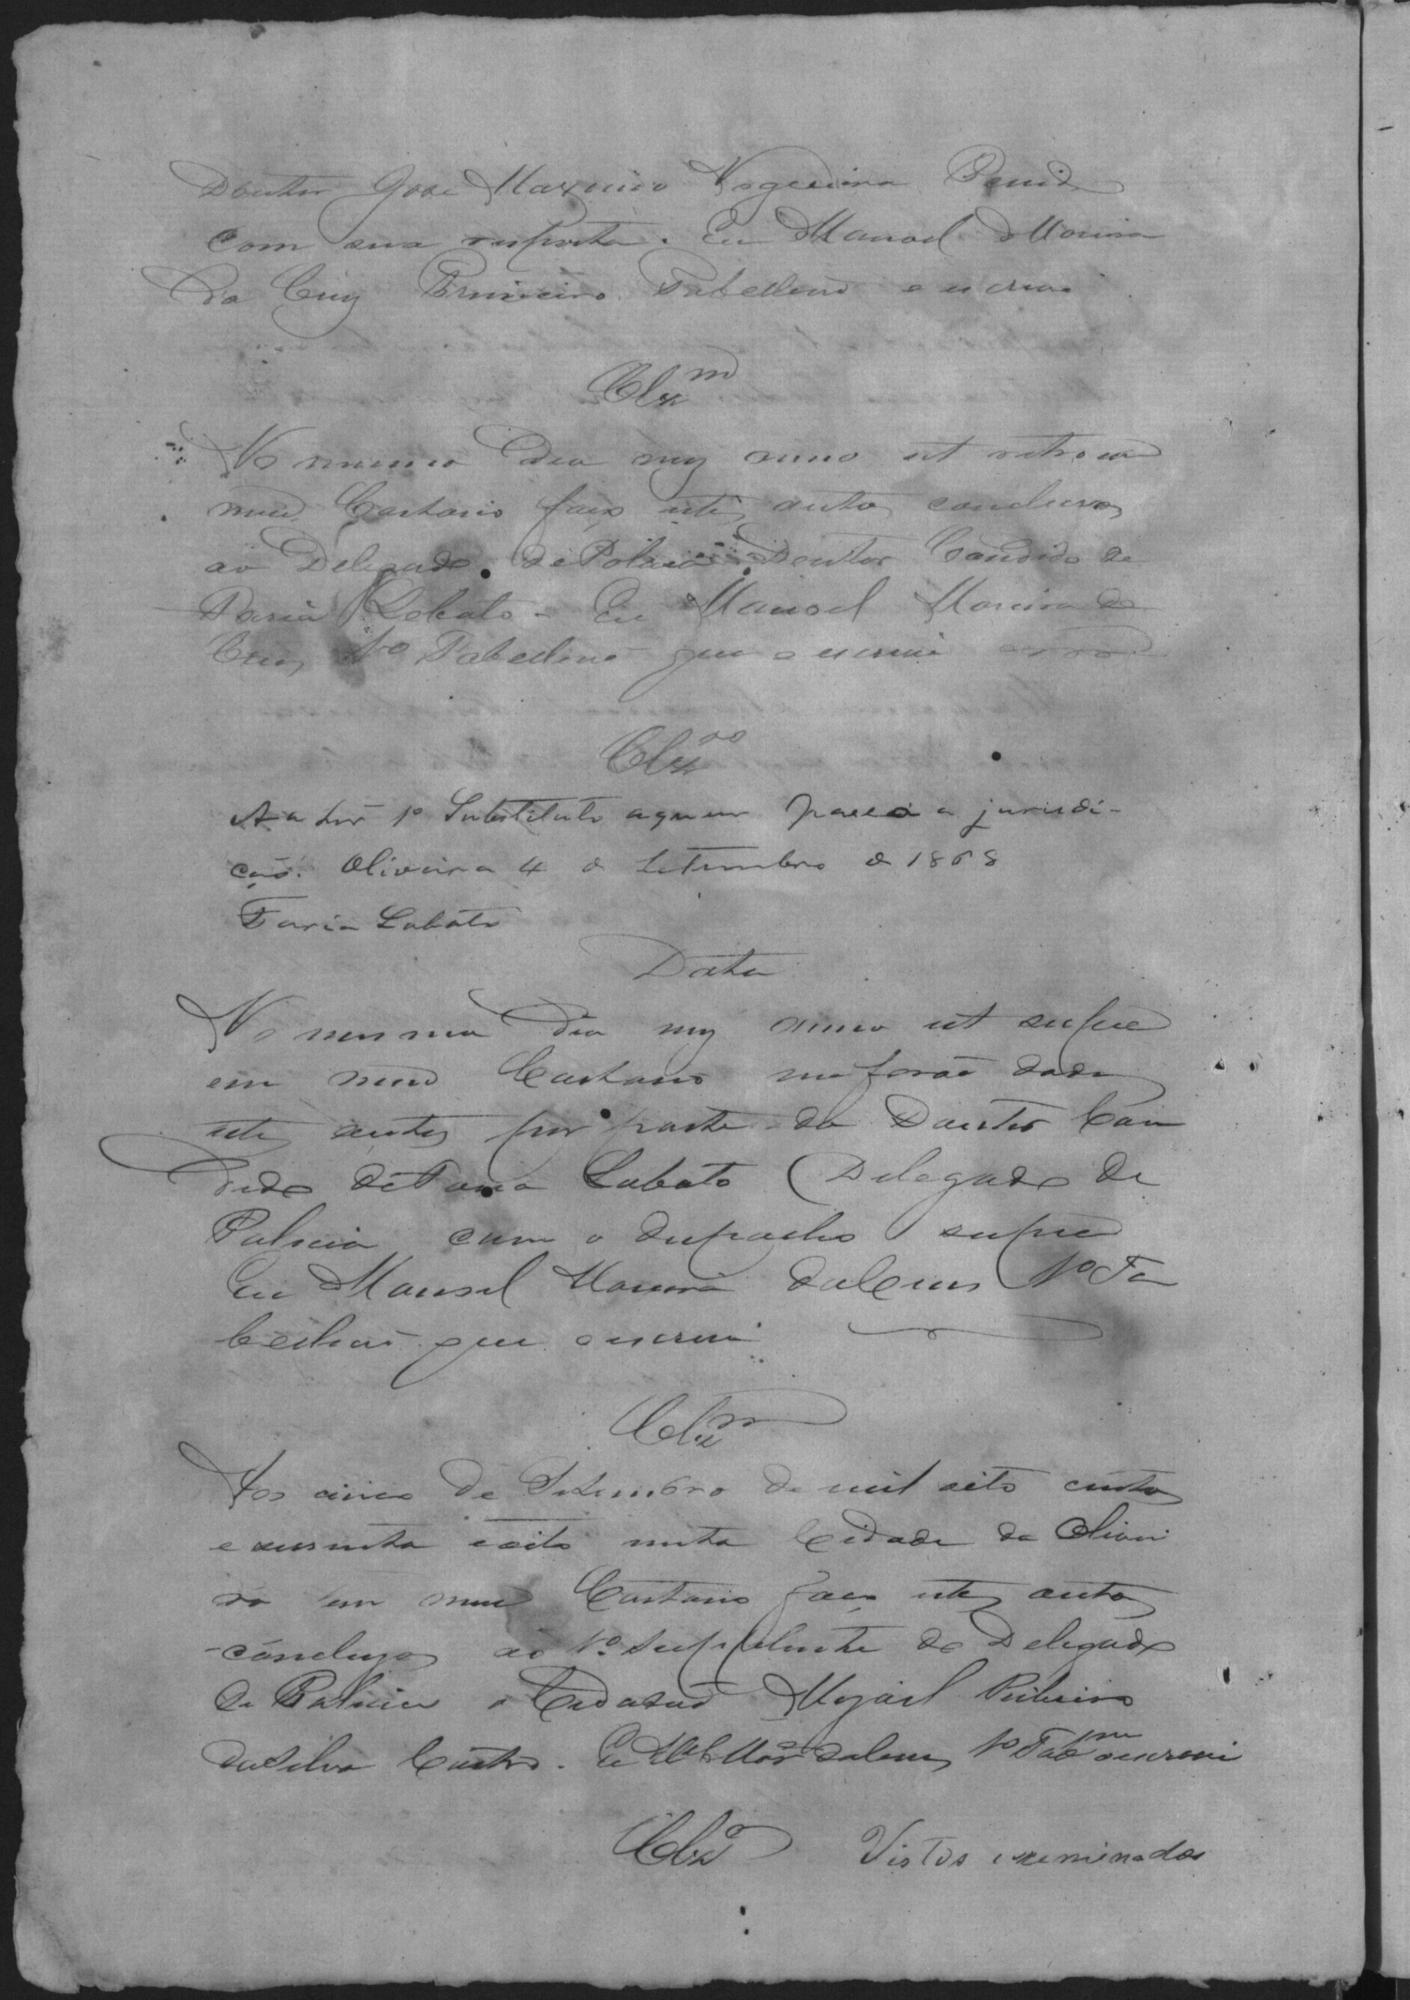 Doutor Jose Maximino Nogueira Penido
com sua resposta. Eu Manoel Moreira
da Cruz Primeiro Tabelliaõ o escrevi
Clz.m
No mesmo dia mez anno ut retro em
meu Cartorio faço estes autos concluzos
ao Delegado de Policia Doutor Candido de
Faria Lobato - Eu Manoel Moreira da
Cruz 1º Tabelliaõ que o escrevi
Clz.ao
Ao Snr 1º Substituto a quem passei a jurisdi-
caõ. Oliveira 4 de Setembro de 1868
Faria Lobato
Data
No mesmo dia mez anno ut supra
em meu Cartorio me foraõ dados
estes autos por parte do Doutor Can
dido de Faria Lobato Delegado de
Policia com o despacho supra
Eu Manoel Moreira da Cruz 1º Ta
belliaõ que o escrevi
Clz.m
Aos cinco de Setembro de mil oito centos
e sessenta e oito nesta Cidade da Olivei
ra em meu Cartorio faço estes autos
concluzos ao 1º Supplente do Delegado
de Policia o Cidadaõ Mizael Ribeiro
da Silva Castro. Eu M.el Mor.a da Cruz 1º Tab.m o escrevi
Clz.o Vistos e examinados